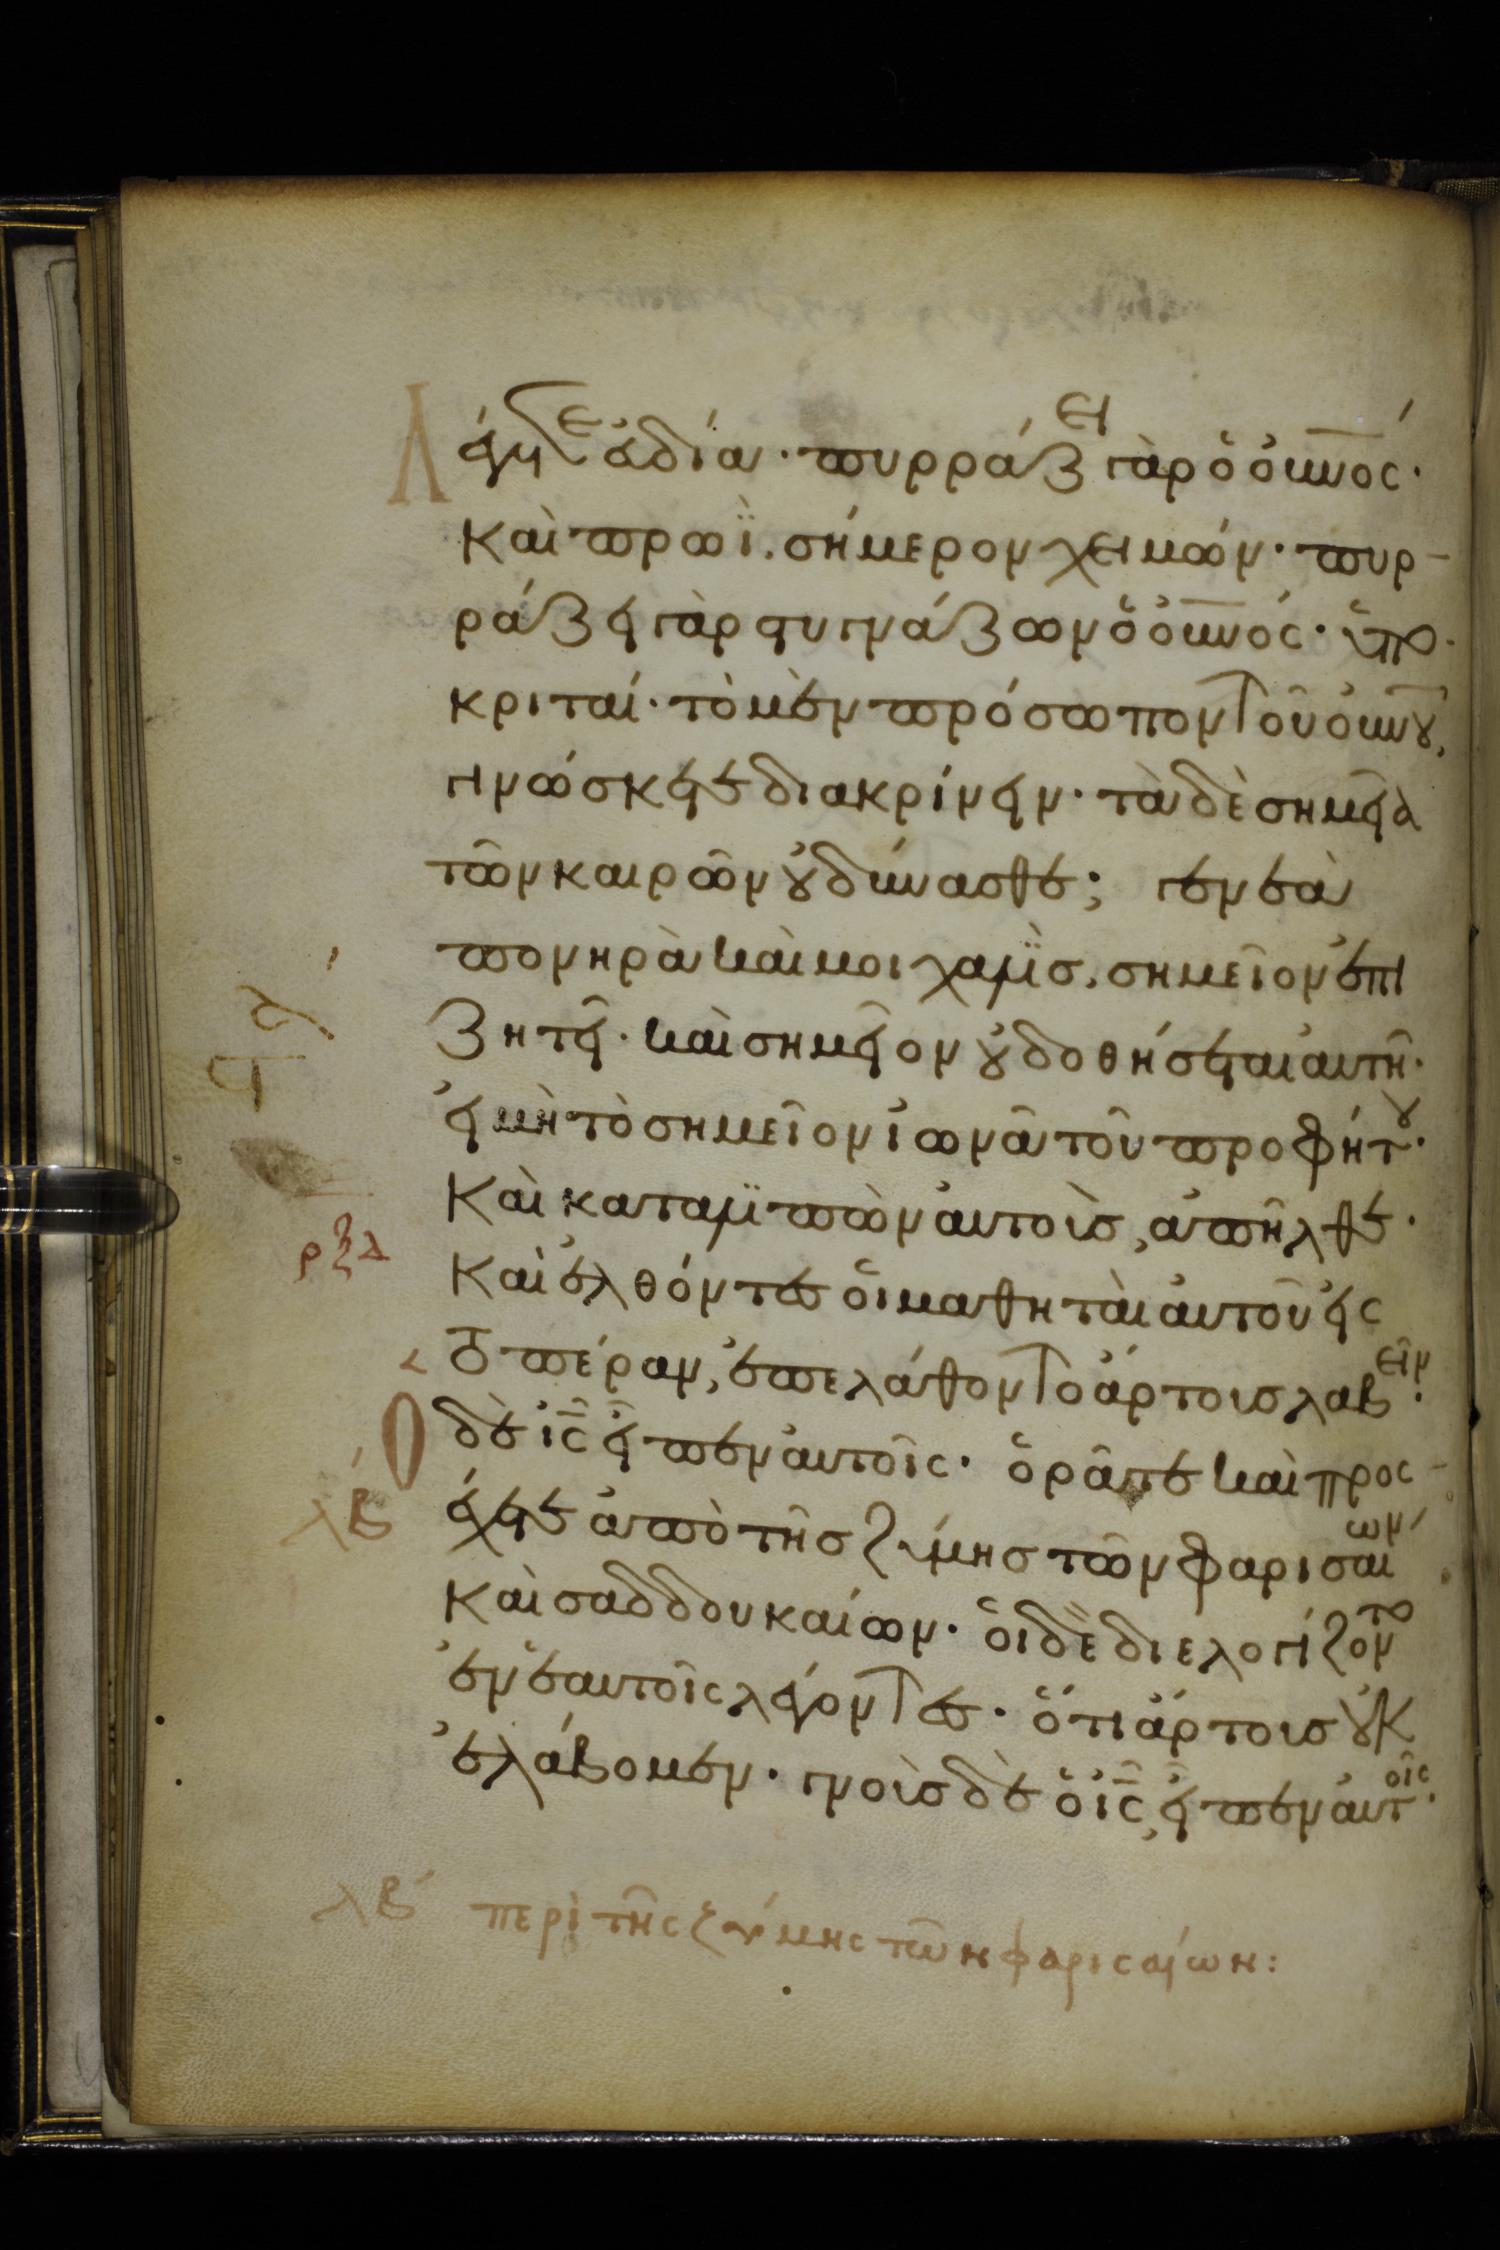 Λέγετε εὐδία· πυρράζει γὰρ ὁ οὐ̅νος·
Καὶ πρωΐ. σήμερον χειμών· πυρ-
ράζει γὰρ στυγνάζων ὁ οὐ̅νός· ὑπο
κριταί· τὸ μὲν πρόσωπον τοῦ οὐ̅νου,
γινώσκετε διακρίνειν· τὰ δὲ σημεῖα
τῶν καιρῶν οὐ δύνασθε; γενεὰ
πονηρὰ καὶ μοιχαλὶς, σημεῖον ἐπι
ζητεῖ· καὶ σημεῖον οὐ δοθήσεται αὐτῆ·
εἰ μὴ τὸ σημεῖον ἰωνᾶ τοῦ προφήτου·
Καὶ καταλιπὼν αὐτοὺς, ἀπῆλθε·
ρξδ
Καὶ ἐλθόντες οἱ μαθηταὶ αὐτοῦ εἰς
τὸ πέραν, ἐπελάθοντο ἄρτους λαβεῖν·
Ὁ δὲ ἰ̅ς̅ εἶπεν αὐτοῖς· ὁρᾶτε καὶ προς-
λβ
έχετε ἀπὸ τῆς ζύμης τῶν φαρισαίων
Καὶ σαδδουκαίων· οἱ δὲ διελογίζοντο
ἐν ἑαυτοῖς λέγοντες· ὅτι ἄρτους οὐκ
ἐλάβομεν· γνοὺς δὲ ὁ ἰ̅ς̅, εἶπεν αὐτοῖς·
λβ περὶ τῆς ζύμης τῶν φαρισαίων: